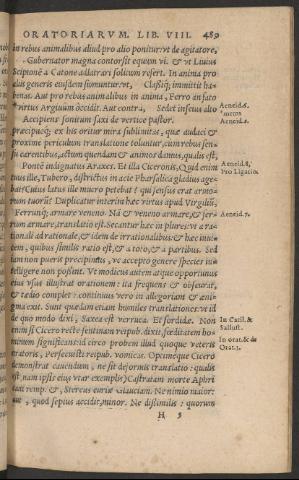 ORATORIARVM. LIB. VIII. 489
in rebus animalibus aliud pro alio ponitur: vt de agitatore,
Gubernator magna contorsit equum vi. & vt Liuius
Scipionē a Catone adlatrari solitum refert. In anima pro
aliis generis eiusdem sumuntur: vt, Classiq; immittit ha-
benas. Aut pro rebus animalibus inanima, Ferro an fato
virtus Argiuûm occidit. Aut contrà, Sedet inscius alto
Accipiens sonitum saxi de vertice pastor.
præcipueq; ex his oritur mira sublimitas, quæ audaci &
proximè periculum translatione tolluntur, cùm rebus sen-
su carentibus, actum quendam & animos damus, qualis est,
Pontē indignatus Araxes. Et illa Ciceronis, Quid enim
tuus ille, Tubero, districtus in acie Pharsalica gladius age-
bat? Cuius latus ille mucro petebat? qui sensus erat armo-
rum tuorū? Duplicatur interim hæc virtus apud Virgiliū,
Ferrumq; armare veneno. Nā & veneno armare, & fer-
rum armare, translatio est. Secantur hæc in plures: vt a ra-
tionali ad rationale, & idem de irrationalibus: & hæc inui-
cem, quibus similis ratio est, & a toto, & a partibus. Sed
iam non pueris præcipimus, vt accepto genere species in-
telligere non possint. Vt modicus autem atque opportunus
eius vsus illustrat orationem: ita frequens & obscurat,
& tædio complet: continuus verò in allegoriam & ænig-
ma exit. Sunt quædam etiam humiles translationes: vt id
de quo modo dixi, Saxea est verruca. Et sordidæ. Non
enim si Cicero recte sentinam reipub. dixit, fœditatem ho-
minum significans: id circo probem illud quoque veteris
oratoris, Persecuisti reipub. vomicas. Optimeque Cicero
demonstrat cauendum, ne sit deformis translatio: qualis
est, nam ipsis eius vtar exemplis) Castratam morte Aphri-
cani remp. &, Stercus curiæ Glauciam. Ne nimio maior:
aut, quod sæpius accidit, minor. Ne dissimilis: quorum
H 5
Aeneid. 2.
Aeneid. 8.
Pro Ligario.
Aeneid. 7.
In Catil. &
Sallust.
In orat. & de
Orat. 3.